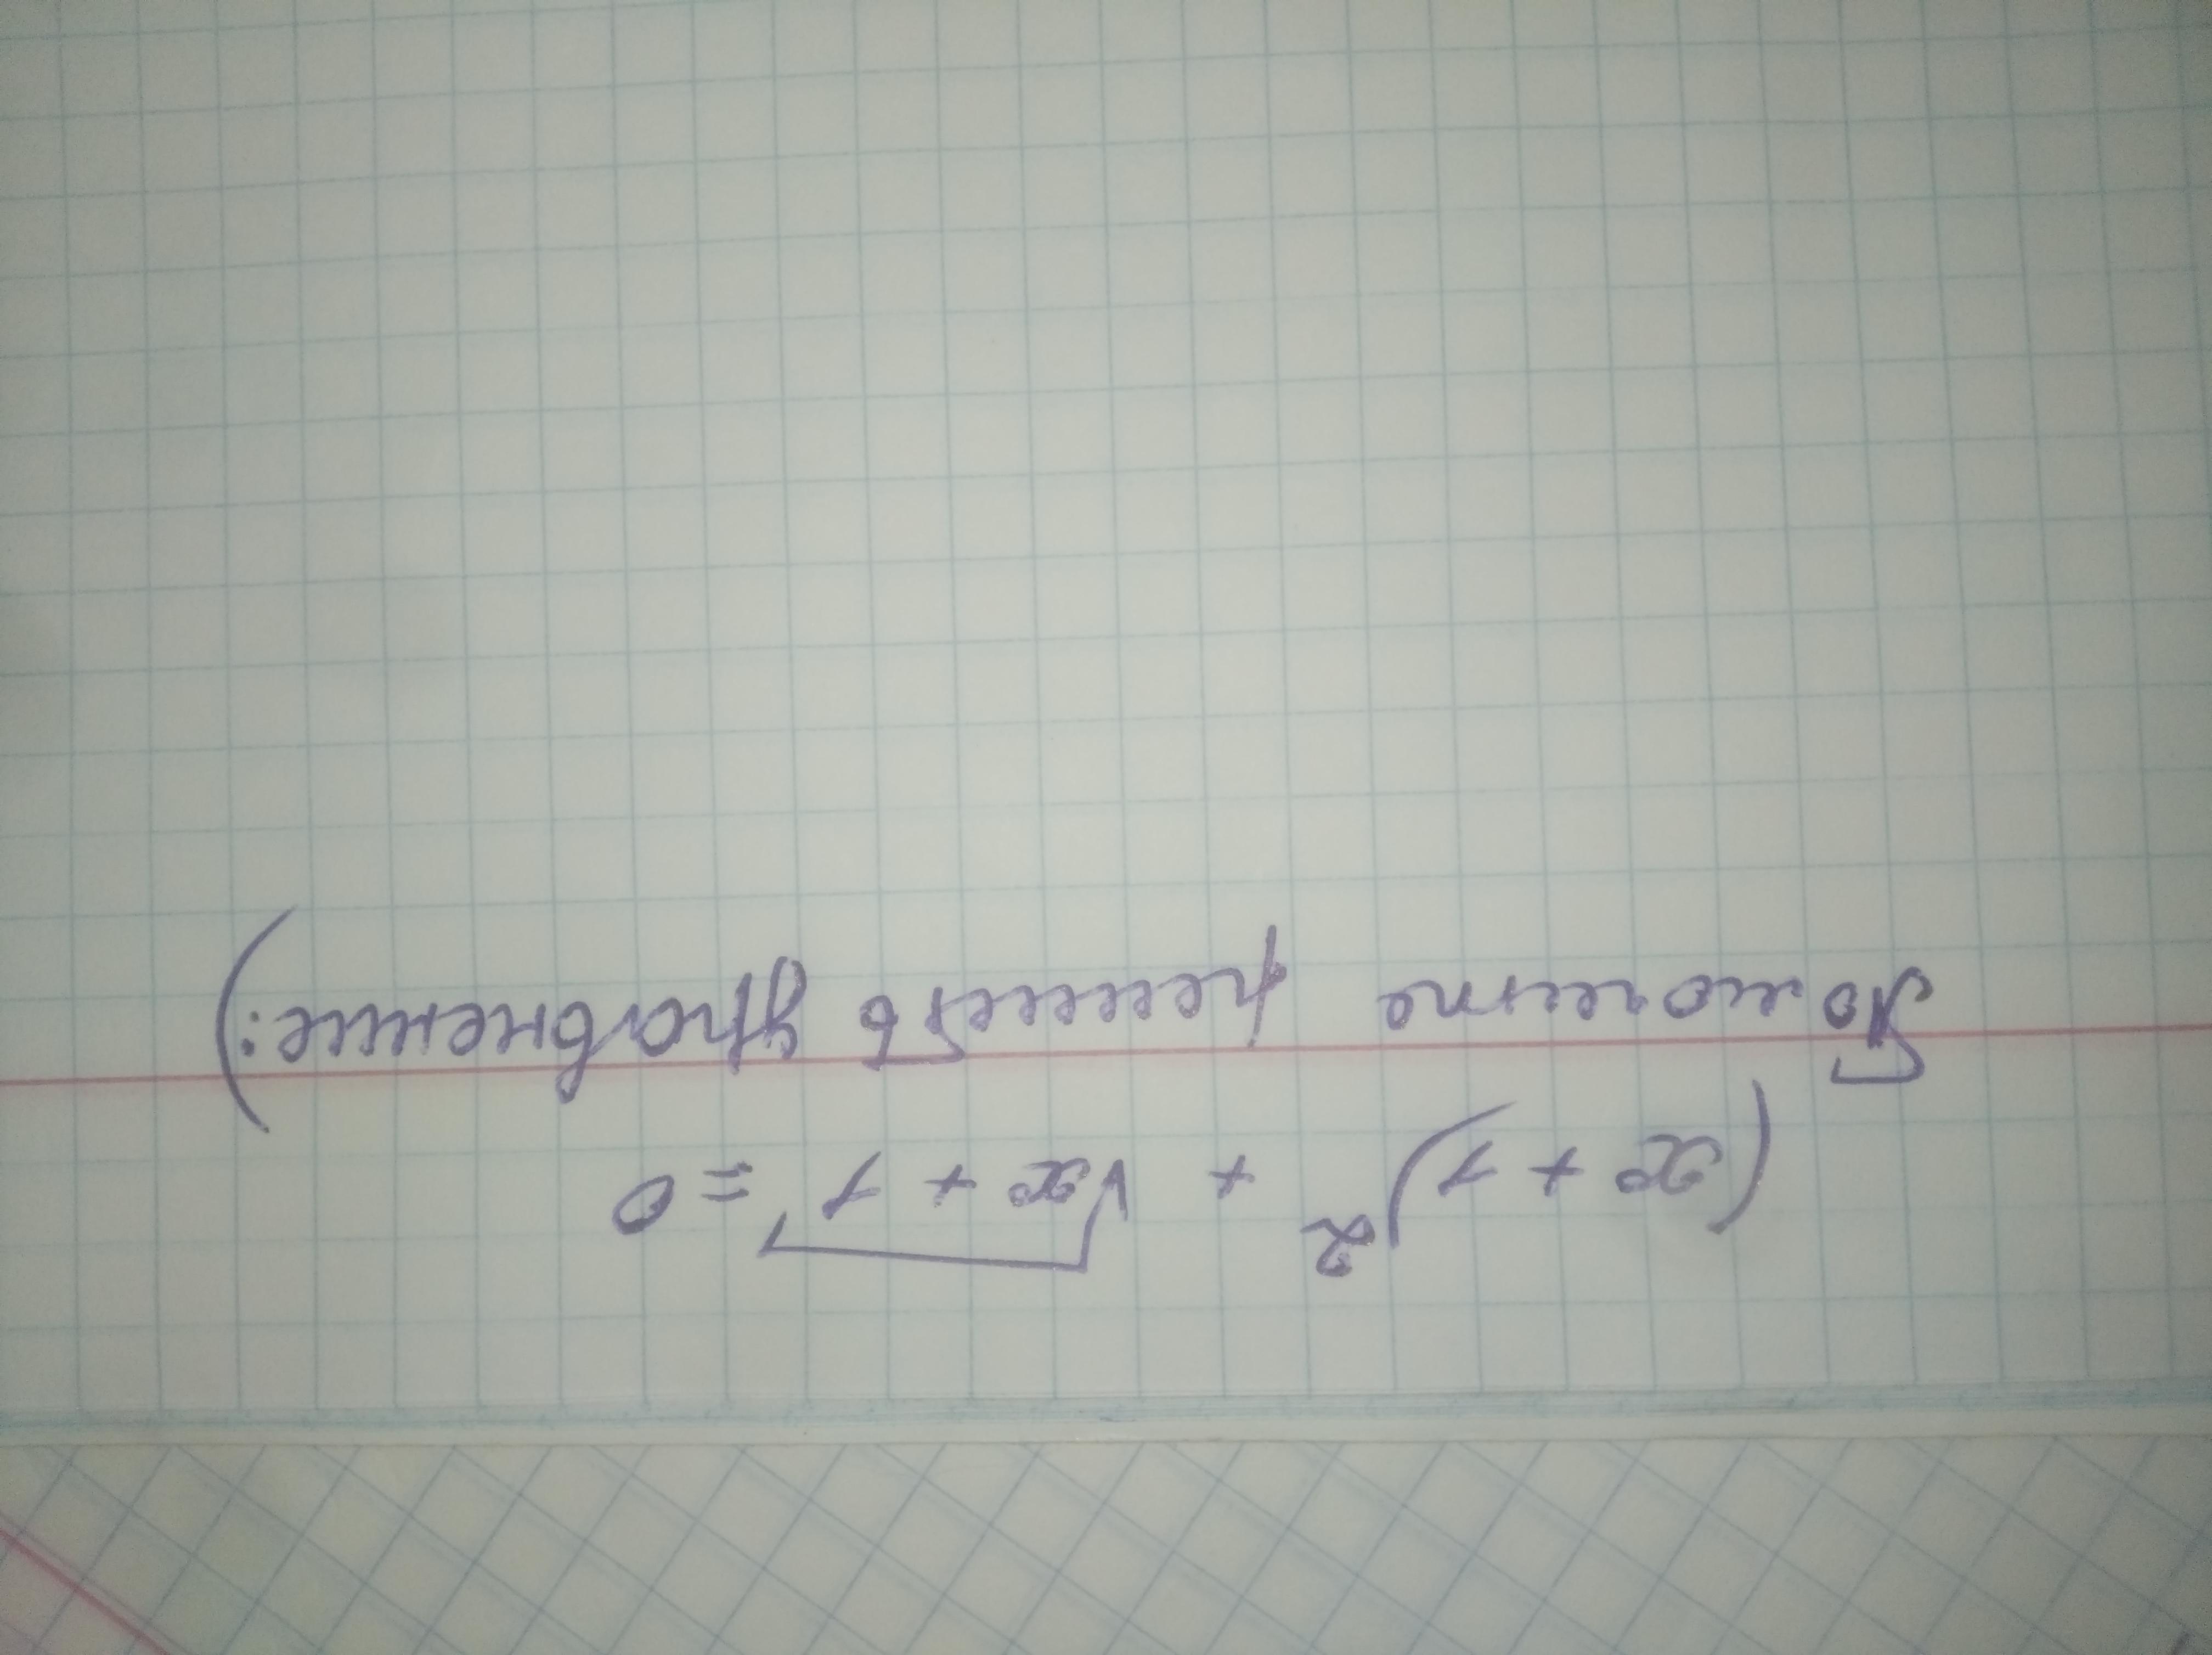 (x + 1)² + √x + 1 = 0
Помогите решить уравнение:)